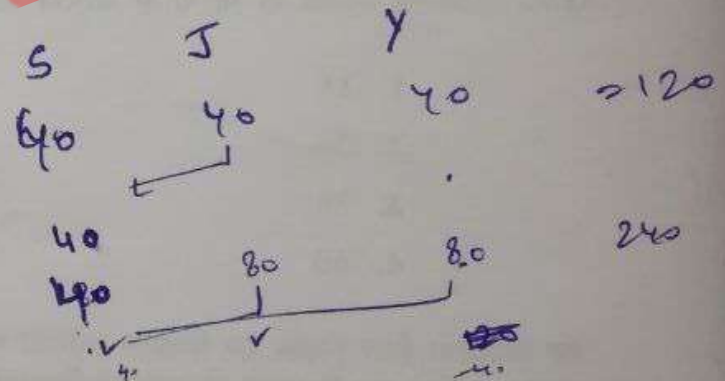 S J Y
40 40 40 = 120
40
80 80 240
40